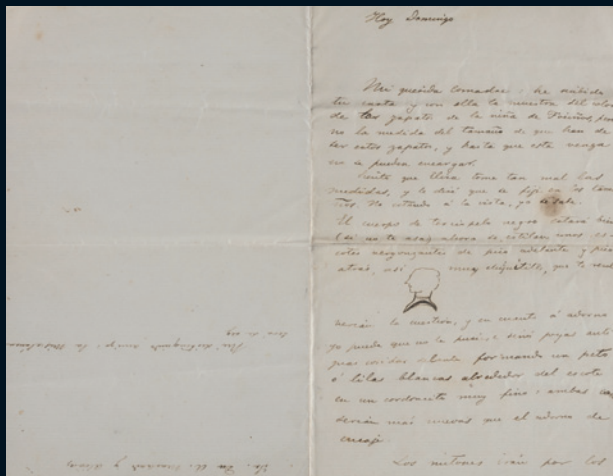 Hoy Domingo
Mi querida comadre: he recibido
tu carta y con ella la muestra del color
de los zapatos de la niña de pero
no la medida del tamaño de que han de
ser estos zapatos, y hasta que esta venga
no se pueden encargar.
Siento que tome tan mal las
medidas, y le diré que se fije en los tama
ños. No estando á la vista, ya se sabe.
El cuerpo de terciopelo negro estará bien
(si no te asas) ahora se estilan unos es
cotes vergonzantes de pico adelante y pico
atras, asi muy chiquitito, que te resol
verian la cuestion, y en cuanto á adorno
yo puede que no te pusiese sinó joyas anti
guas cosidas formando un peto
ó lilas blancas alrededor del escote
en un cordoncito muy fino: ambas co
serian más nuevas que el adorno de
encaje.
Los mitones irán por los